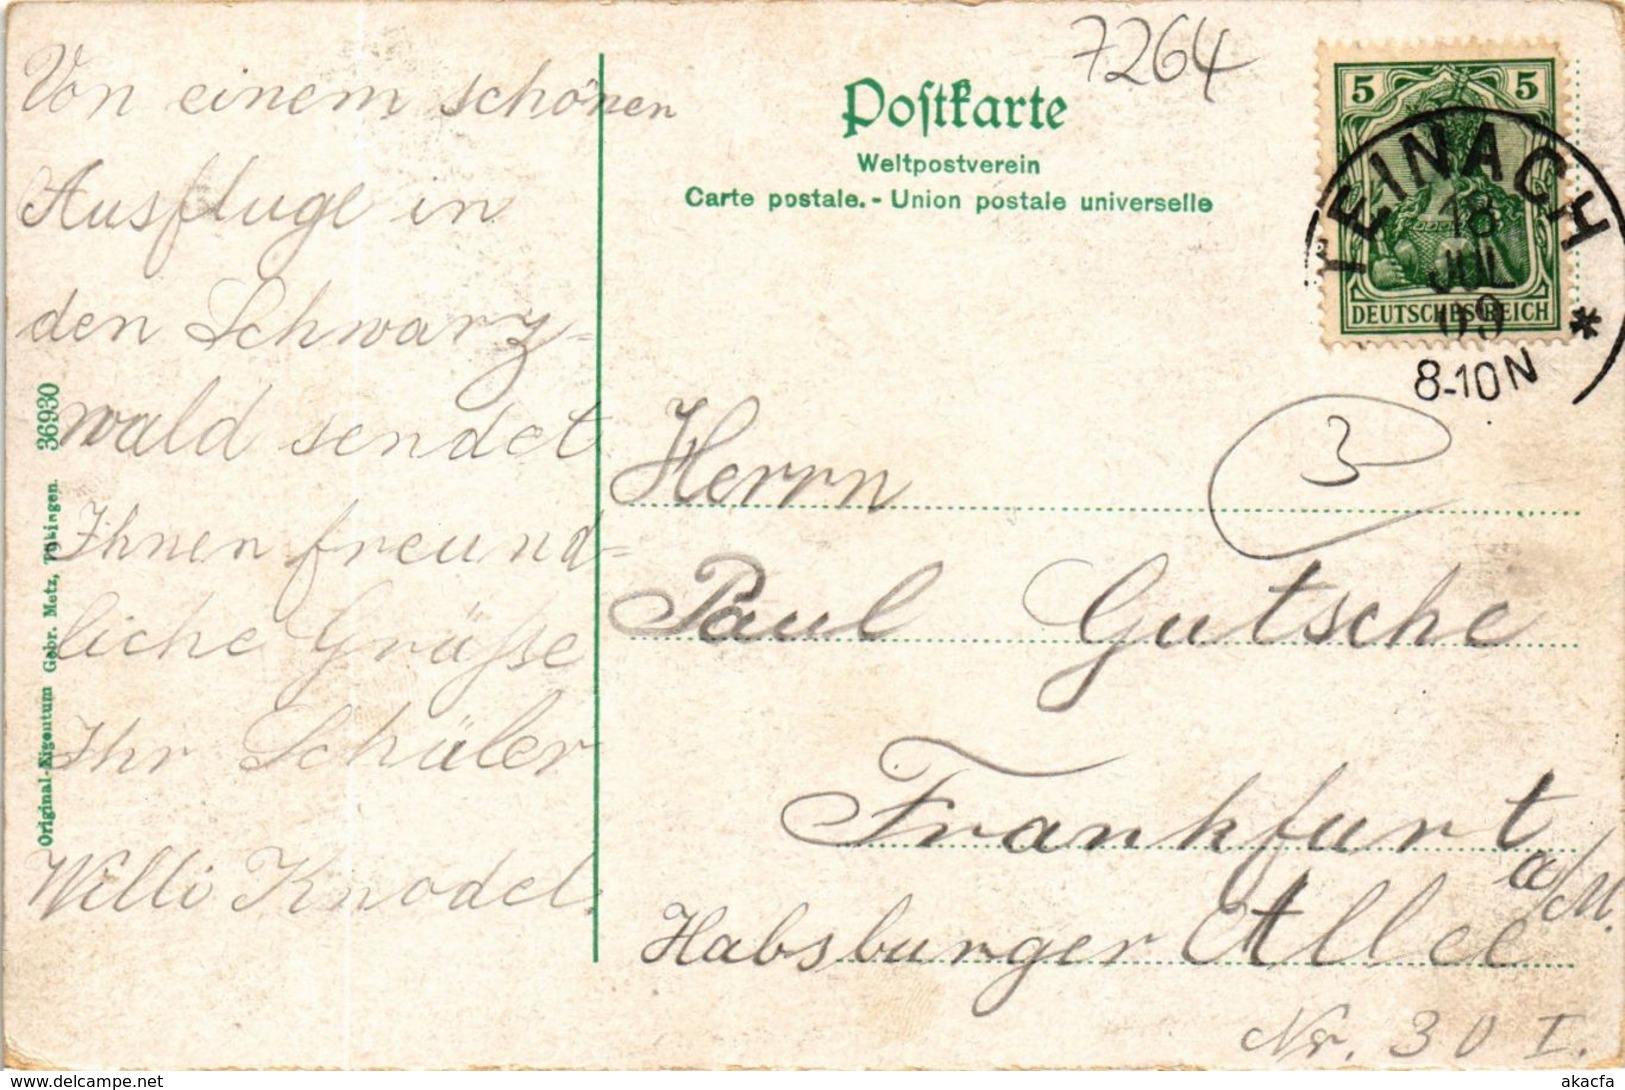 Von einem schönen
Ausfluge in
den Schwarz-
wald sendet
Ihnen freund-
liche Grüsse
Ihr Schüler
Willi Knodel.
Original-Eigentum Gebr. Metz, Tübingen. 36930
7264
Postkarte
Weltpostverein
Carte postale. - Union postale universelle
5 5
DEUTSCHES REICH
TEINACH
18
JUL
09
8-10N
*
3
Herrn
Paul Gutsche
Frankfurt
a/M.
Habsburger Allee
Nr. 30 I.
delcampe.net
akacfa